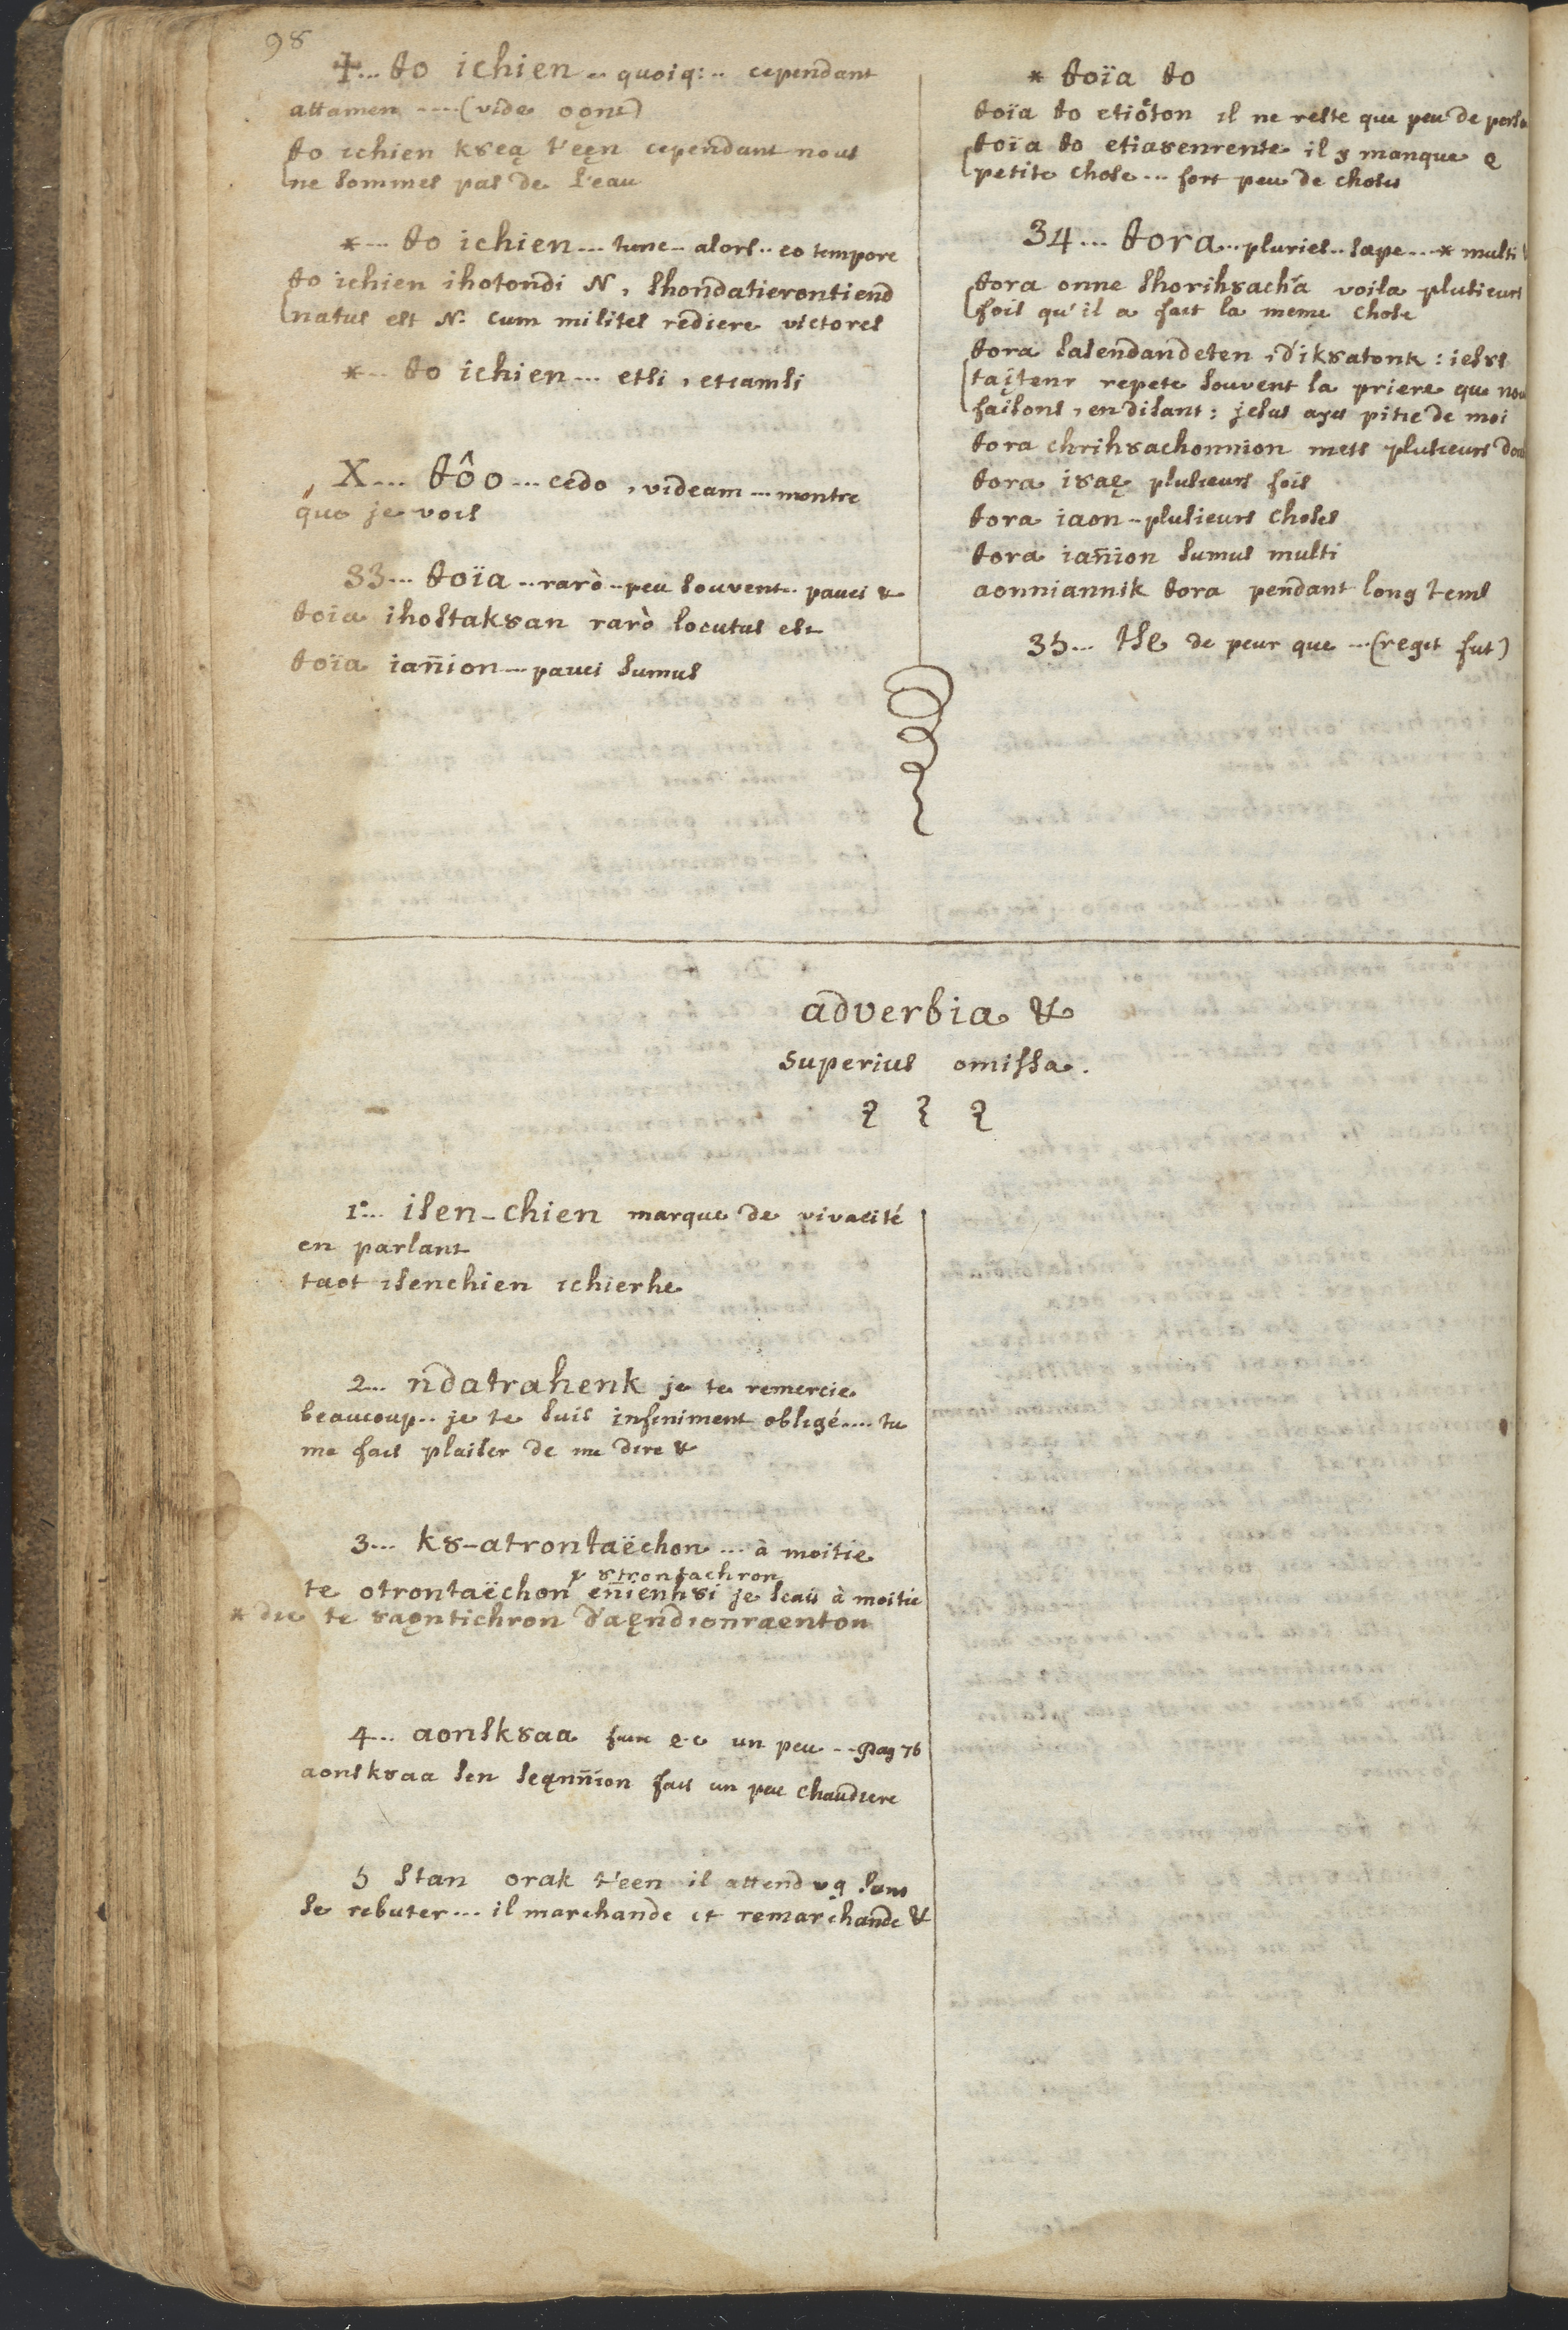 98
‡... ꝋo ichien .. quoiq: .. cependant
attamen .... (vide ogne)
ꝋo ichien k8eą t'eęn cependant nous
ne sommes pas de l'eau
*... ꝋo ichien ... tunc .. alors .. eo tempore
ꝋo ichien ihotondi N, shondatierontiend
natus est N. cum milites rediere victores
*... ꝋo ichien ... etsi, etiamsi
X... ꝋôo ... cedo, videam ... montre
que je vois
33... ꝋoïa .. rarò .. peu souvent .. pauci &
ꝋoïa ihostak8an rarò locutus est
ꝋoïa iañion ... pauci sumus
* ꝋoïa ꝋo
ꝋoïa ꝋo etioton il ne reste que peu de
ꝋoïa ꝋo etia8enrente il y manque
petite chose ... fort peu de choses
34... ꝋora .. pluries .. sæpe ... * multi
ꝋora onne shorih8acha voila plusieurs
fois qu'il a fait la meme chose
ꝋora sasendandeten, d'ik8atonk : ies8s
taįtenr repete souvent la priere que nous
faisons, en disant : jesus ayes pitie de moi
ꝋora chrih8achonnion mets plusieurs
ꝋora i8aę plusieurs fois
ꝋora iaon .. plusieurs choses
ꝋora iañion sumus multi
aonniannik ꝋora pendant long tems
35... tse de peur que ... (regit fut)
adverbia &
superius omissa.
1°... isen-chien marque de vivacité
en parlant
taot isenchien ichierhe
2... ndatrahenk je te remercie
beaucoup .. je te suis infiniment obligé .... tu
me fais plaisir de me dire &
3... k8-atrontaëchon ... à moitie
8trontachron
te otrontaëchon eñienh8i je scais à moitie
* die te 8aęntichron d'aęndionraenton
4... aonsk8aa un peu ... pag 76
aonsk8aa sen seąnnion fais un peu chaudiere
5 stan orak t'een il attend sans
se rebuter ... il marchande et remarchande &